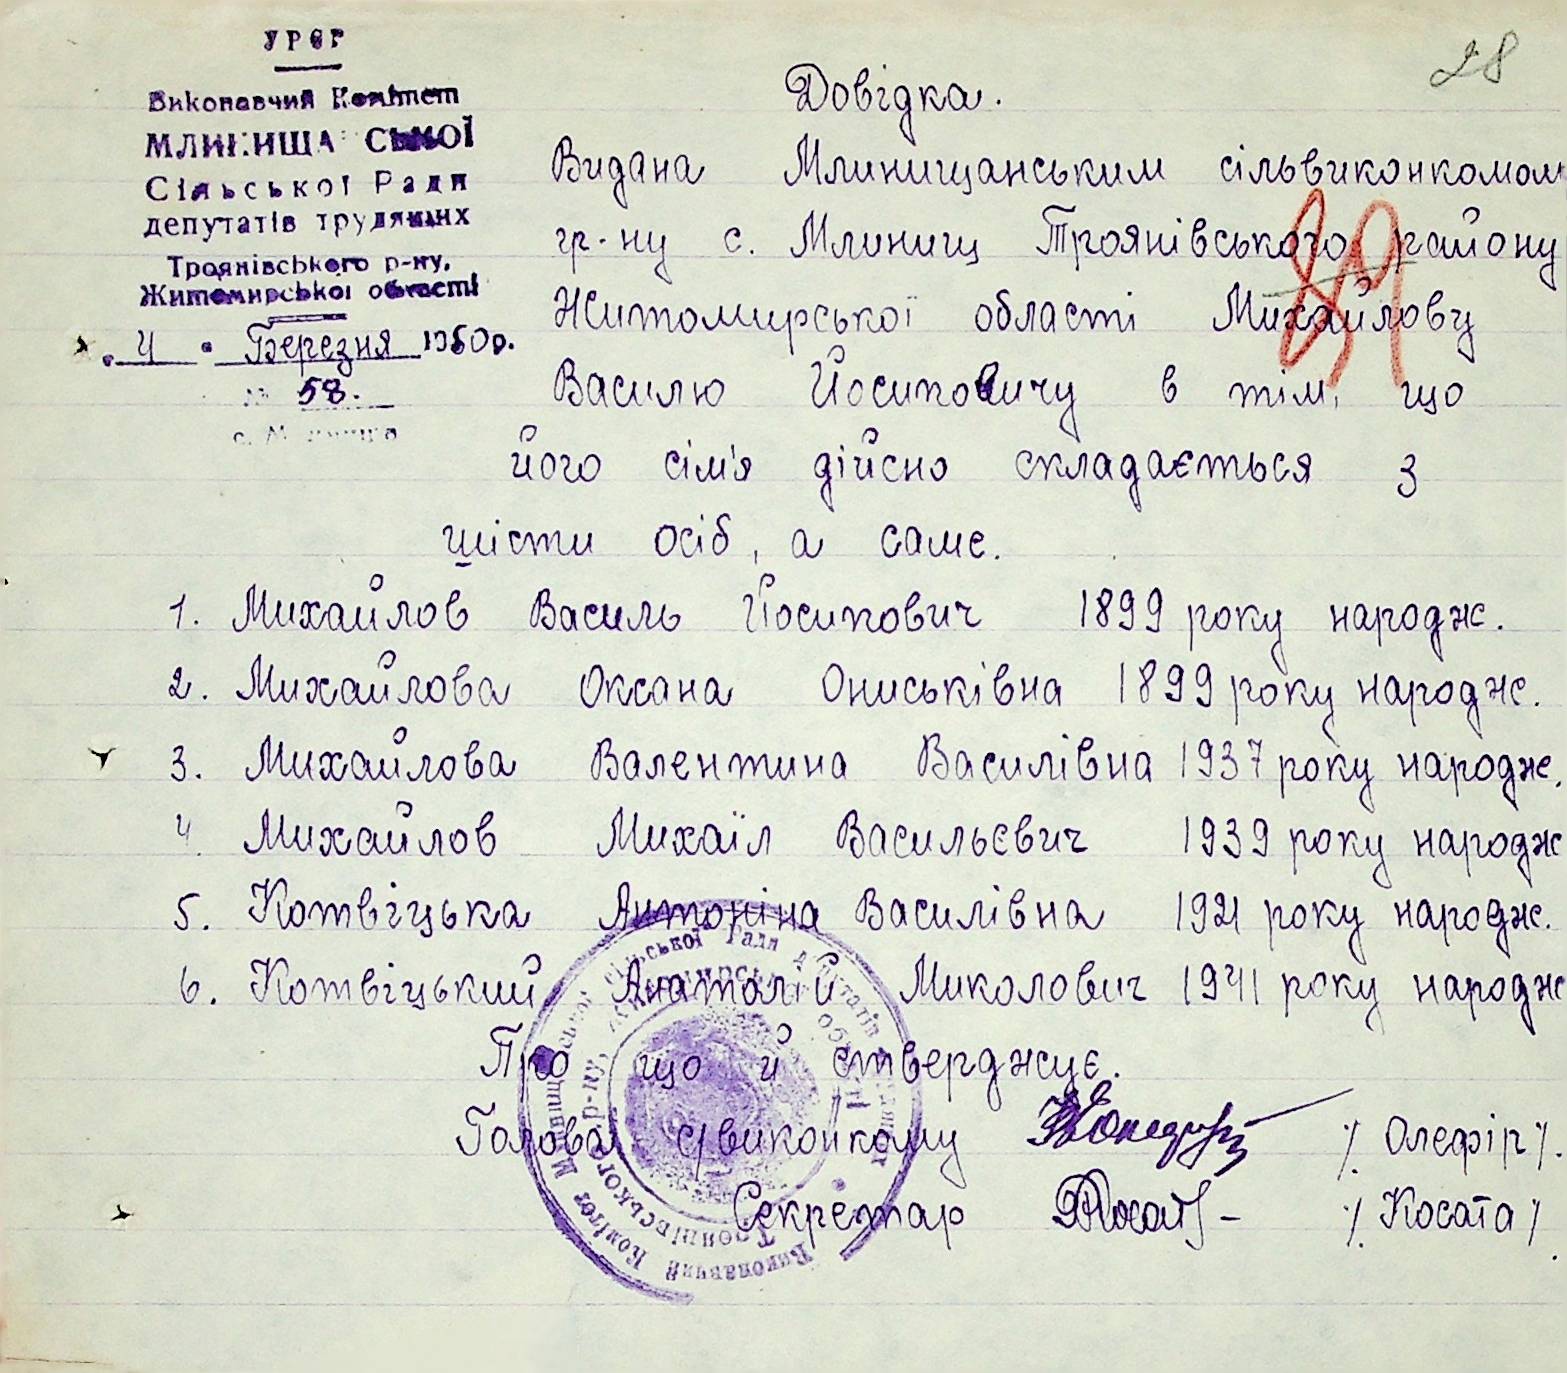 УРСР
Виконавчий Комітет
МЛИНИЩАНСЬКОЇ
Сільської Ради
депутатів трудящих
Троянівського р-ну,
Житомирської області
"4" Березня 1950р.
№ 58.
28
89
Довідка.
Видана Млинищанським сільвиконкомом
гр-ну с. Млинищ Троянівського району
Житомирської області Михайлову
Василю Йосиповичу в тім, що
його сім'я дійсно складається з
шісти осіб, а саме.
1. Михайлов Василь Йосипович 1899 року народж.
2. Михайлова Оксана Ониськівна 1899 року народж.
3. Михайлова Валентина Василівна 1937 року народж.
4. Михайлов Михаїл Васильєвич 1939 року народж
5. Котвіцька Антоніна Василівна 1921 року народж.
6. Котвіцький Анатолій Миколович 1941 року народж
Про що й стверджує.
Голова с/виконкому /Олефір/.
Секретар /Косата/.
Виконавчий Комітет Млинищанської сільської Ради депутатів трудящих
Троянівського р-ну, Житомирської області